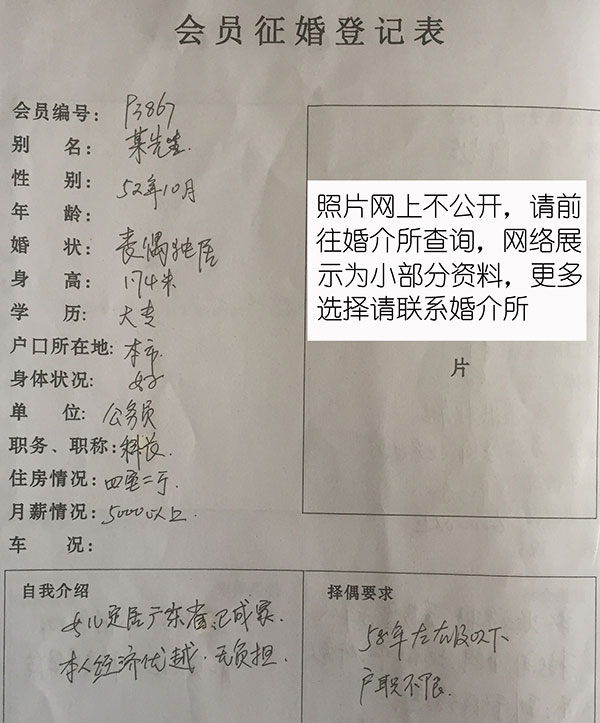 会员征婚登记表
会员编号: P3867
别 名: 某先生.
性 别:
52年10月
年 龄:
婚 状: 丧偶独居
身 高: 174米
学 历: 大专
户口所在地: 本市.
身体状况: 好
单 位: 公务员
职务、职称: 科长.
住房情况: 四室二厅.
月薪情况: 5000以上.
车 况:
照片网上不公开，请前
往婚介所查询，网络展
示为小部分资料，更多
选择请联系婚介所
片
自我介绍
女儿定居广东省.已成家.
本人经济优越.无负担.
择偶要求
58年左右及以下
户职不限.